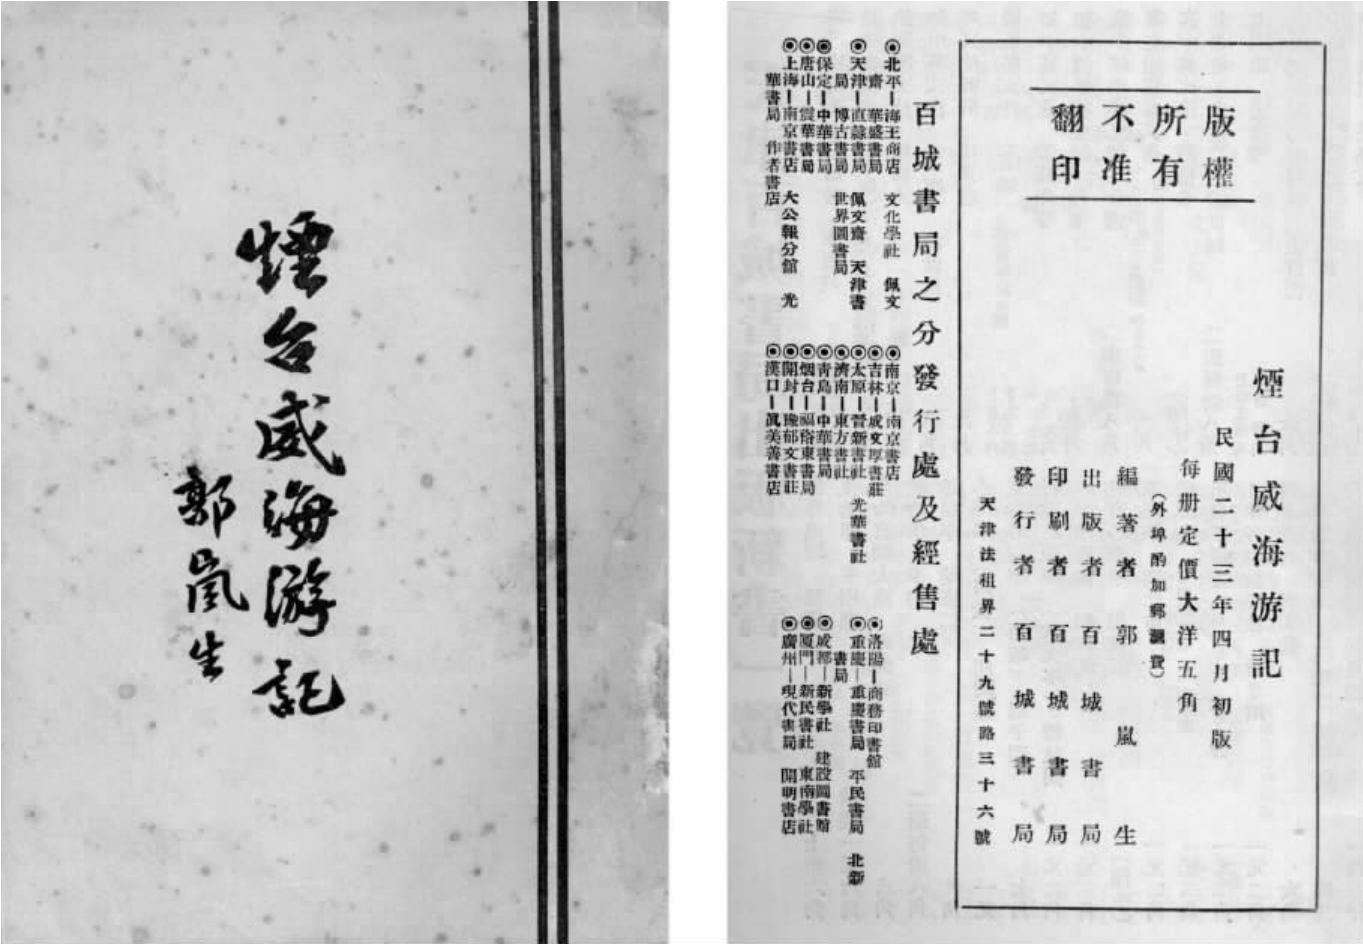 煙台威海游記
郭嵐生
版權
所有
不准
翻印
煙台威海游記
民國二十三年四月初版
每册定價大洋五角
（外埠酌加郵滙費）
編著者 郭嵐生
出版者 百城書局
印刷者 百城書局
發行者 百城書局
天津法租界二十九號路三十六號
百城書局之分發行處及經售處
◉北平—海王商店 文化學社 佩文
齋 華盛書局
◉天津—直隸書局 佩文齋 天津書
局 博古書局 世界圖書局
◉保定—中華書局
◉唐山—震華書局
◉上海—南京書店 大公報分館 光
華書局 作者書店
◉南京—南京書店
◉吉林—成文厚書莊
◉太原—晉新書社 光華書社
◉濟南—東方書社
◉青島—中華書局
◉烟台—福裕東書局
◉開封—豫郁文書莊
◉漢口—眞美善書店
◉洛陽—商務印書館
◉重慶—重慶書局 平民書局 北新
書局
◉成都—新學社 建設圖書館
◉厦門—新民書社 東南學社
◉廣州—現代書局 開明書店